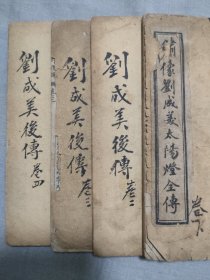 繪像劉成美太陽燈全傳
卷下
劉成美後傳
卷二
劉成美後傳
卷三
劉成美後傳
卷四